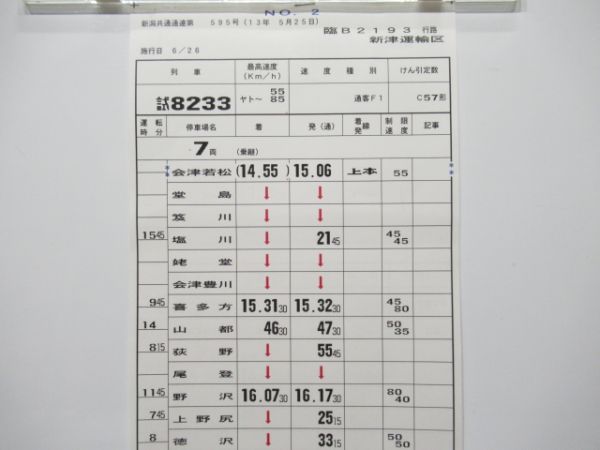 NO. 2
新潟共通通達第 595号(13年 5月25日)
臨B2193 行路
新津運輸区
施行日 6/26
列車 最高速度(Km/h) 速度種別 けん引定数
試8233 ヤト～ 55 85 通客F1 C57形
運転時分 停車場名 着 発(通) 着線発 制限速度 記事
7両 (乗継)
会津若松 (14.55) 15.06 上本 55
堂島 ↓ ↓
笈川 ↓ ↓
1545 塩川 ↓ 2145 45 45
姥堂 ↓ ↓
会津豊川 ↓ ↓
945 喜多方 15.3130 15.3230 45 80
14 山都 4630 4730 50 35
815 荻野 ↓ 5545
尾登 ↓ ↓
1145 野沢 16.0730 16.1730 80 40
745 上野尻 ↓ 2515
8 徳沢 ↓ 3315 50 50